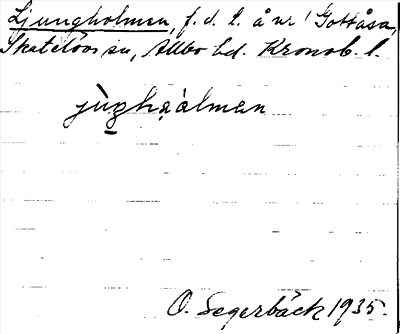 Ljungholmen, f.d. l. å nr 1 Gottåsa,
Skatelövs sn, Allbo hd. Kronob. l.
jùnghålmen
O. Segerbäck 1935.